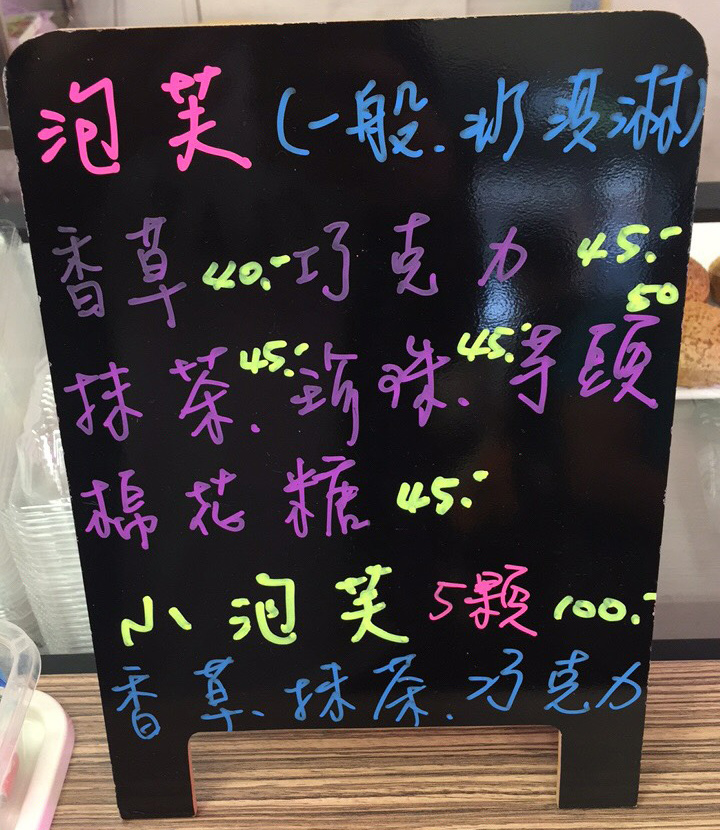 泡芙(一般.冰淇淋)
香草40.-巧克力45.-
抹茶45.-.珍珠45.-.芋頭50
棉花糖45.-
小泡芙5顆100.-
香草.抹茶.巧克力